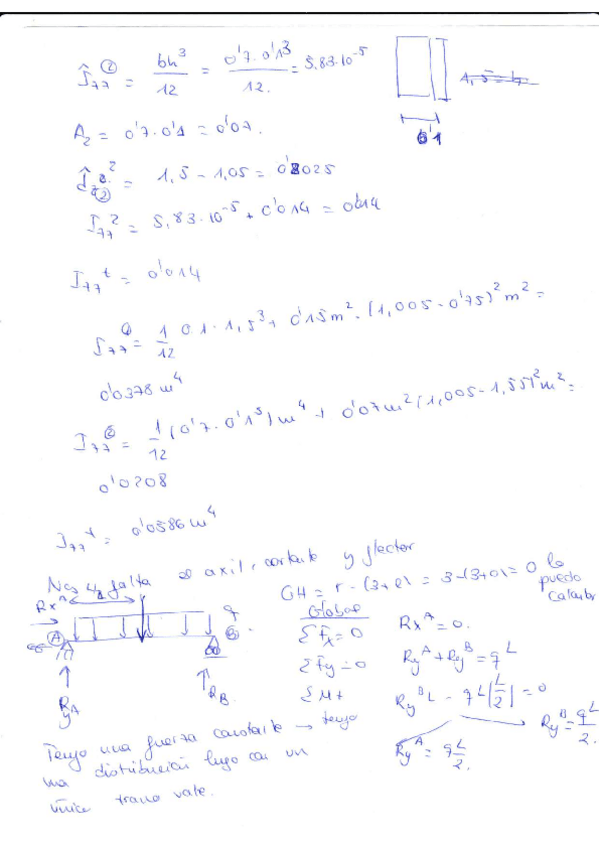 Î₇₇② = bh³/12 = 0'7·0'1³/12. = 5.83·10⁻⁵
0'1
A₂ = 0'7·0'1 = 0'07.
1,5 - 1,05 = 0'2025
I₇₇² = 5,83·10⁻⁵ + 0'014 = 0'014
I₇₇ᵗ = 0'014
I₇₇① = 1/12 0.1·1,5³ + 0'15m²·(1,005 - 0'75)² m² =
0'0378 m⁴
I₇₇② = 1/12 (0'7·0'1³) m⁴ + 0'07m² (1,005 - 1,55)² m² =
0'0208
I₇₇ᵗ = 0'0586 m⁴
falta axil, cortante y flector
GH = r - (3+e) = 3-(3+0) = 0 lo puedo calcular
Global
Rxᴬ
q
A
B
RyA
RB
ΣFx = 0
Rxᴬ = 0.
ΣFy = 0
Ryᴬ + Ryᴮ = qL
ΣM
Ryᴮ L - qL(L/2) = 0
Ryᴮ = qL/2.
Ryᴬ = qL/2.
Tengo una fuerza constante → tengo
una distribución luego con un
único tramo vale.